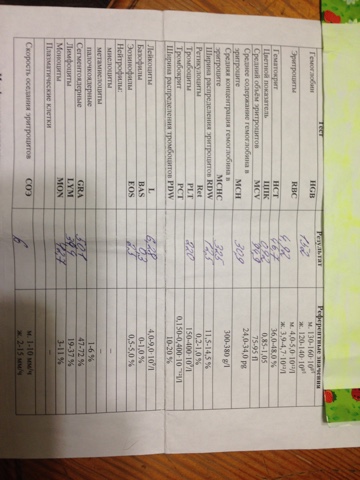 Тест Результат Референтные значения
Гемоглобин HGB 132 м. 130-160 10г/l
ж. 120-140 10г/l
Эритроциты RBC м. 4,0-5,0 10¹²/l
ж. 3,9-4,7 10¹²/l
Гематокрит HCT 36,0-48,0 %
Цветной показатель ЦПК 0,85-1,05
Средний объём эритроцитов MCV 75-95 fl
Среднее содержание гемоглобина в
эритроците MCH 309 24,0-34,0 pg
Средняя концентрация гемоглобина в
эритроците MCHC 325 300-380 g/l
Ширина распределения эритроцитов RDW 11,5-14,5 %
Ретикулоциты Ret 0,2-1,0 %
Тромбоциты PLT 220 150-400 10⁹/l
Тромбокрит PCT 0,150-0,400 10⁻²/l
Ширина распределения тромбоцитов PDW 10-20 %
Лейкоциты L 4,0-9,0 10⁹/l
Базофилы BAS 0-1,0 %
Эозинофилы EOS 0,5-5,0 %
Нейтрофилы:
миелоциты –
метамиелоциты –
палочкоядерные 1-6 %
Сегментоядерные GRA 47-72 %
Лимфоциты LYM 19-37 %
Моноциты MON 3-11 %
Плазматические клетки
Скорость оседания эритроцитов СОЭ 6 м. 1-10 мм/ч
ж. 2-15 мм/ч